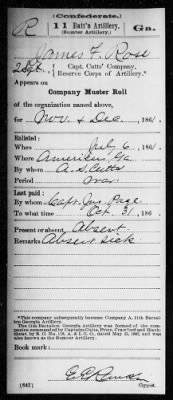 (Confederate.)
R 11 Batt'n Artillery. Ga.
(Sumter Artillery.)
James F. Rose
2 Sgt., Capt. Cutts' Company,
Reserve Corps of Artillery.*
Appears on
Company Muster Roll
of the organization named above,
for Nov. & Dec., 1861.
Enlisted:
When July 6, 1861.
Where Americus, Ga.
By whom A. S. Cutts
Period War
Last paid:
By whom Capt. Jas. Page
To what time Oct. 31, 186 .
Present or absent Absent
Remarks Absent Sick
*This company subsequently became Company A, 11th Battalion Georgia Artillery.
The 11th Battalion Georgia Artillery was formed of the companies commanded by Captains Cutts, Price, Crawford and
by S. O. No. 118, A. & I. G. O., dated May 22, 1862, and was also known as the Sumter Artillery.
Book mark:
(642)
Copyist.